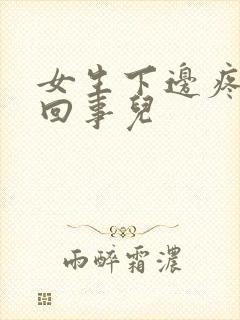 女生下邊疼
回事兒
雨醉霜濃